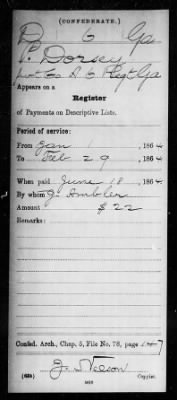 (CONFEDERATE.)
D 6 Ga
P. Dorsey
Co. A 6 Regt Ga
Appears on a
Register
of Payments on Descriptive Lists.
Period of service:
From Jan 1, 1864
To Feb 29, 1864
When paid June 18, 1864
By whom J. Ambler
Amount $22
Remarks:
Confed. Arch., Chap. 5, File No. 76, page
J. Nelson
Copyist.